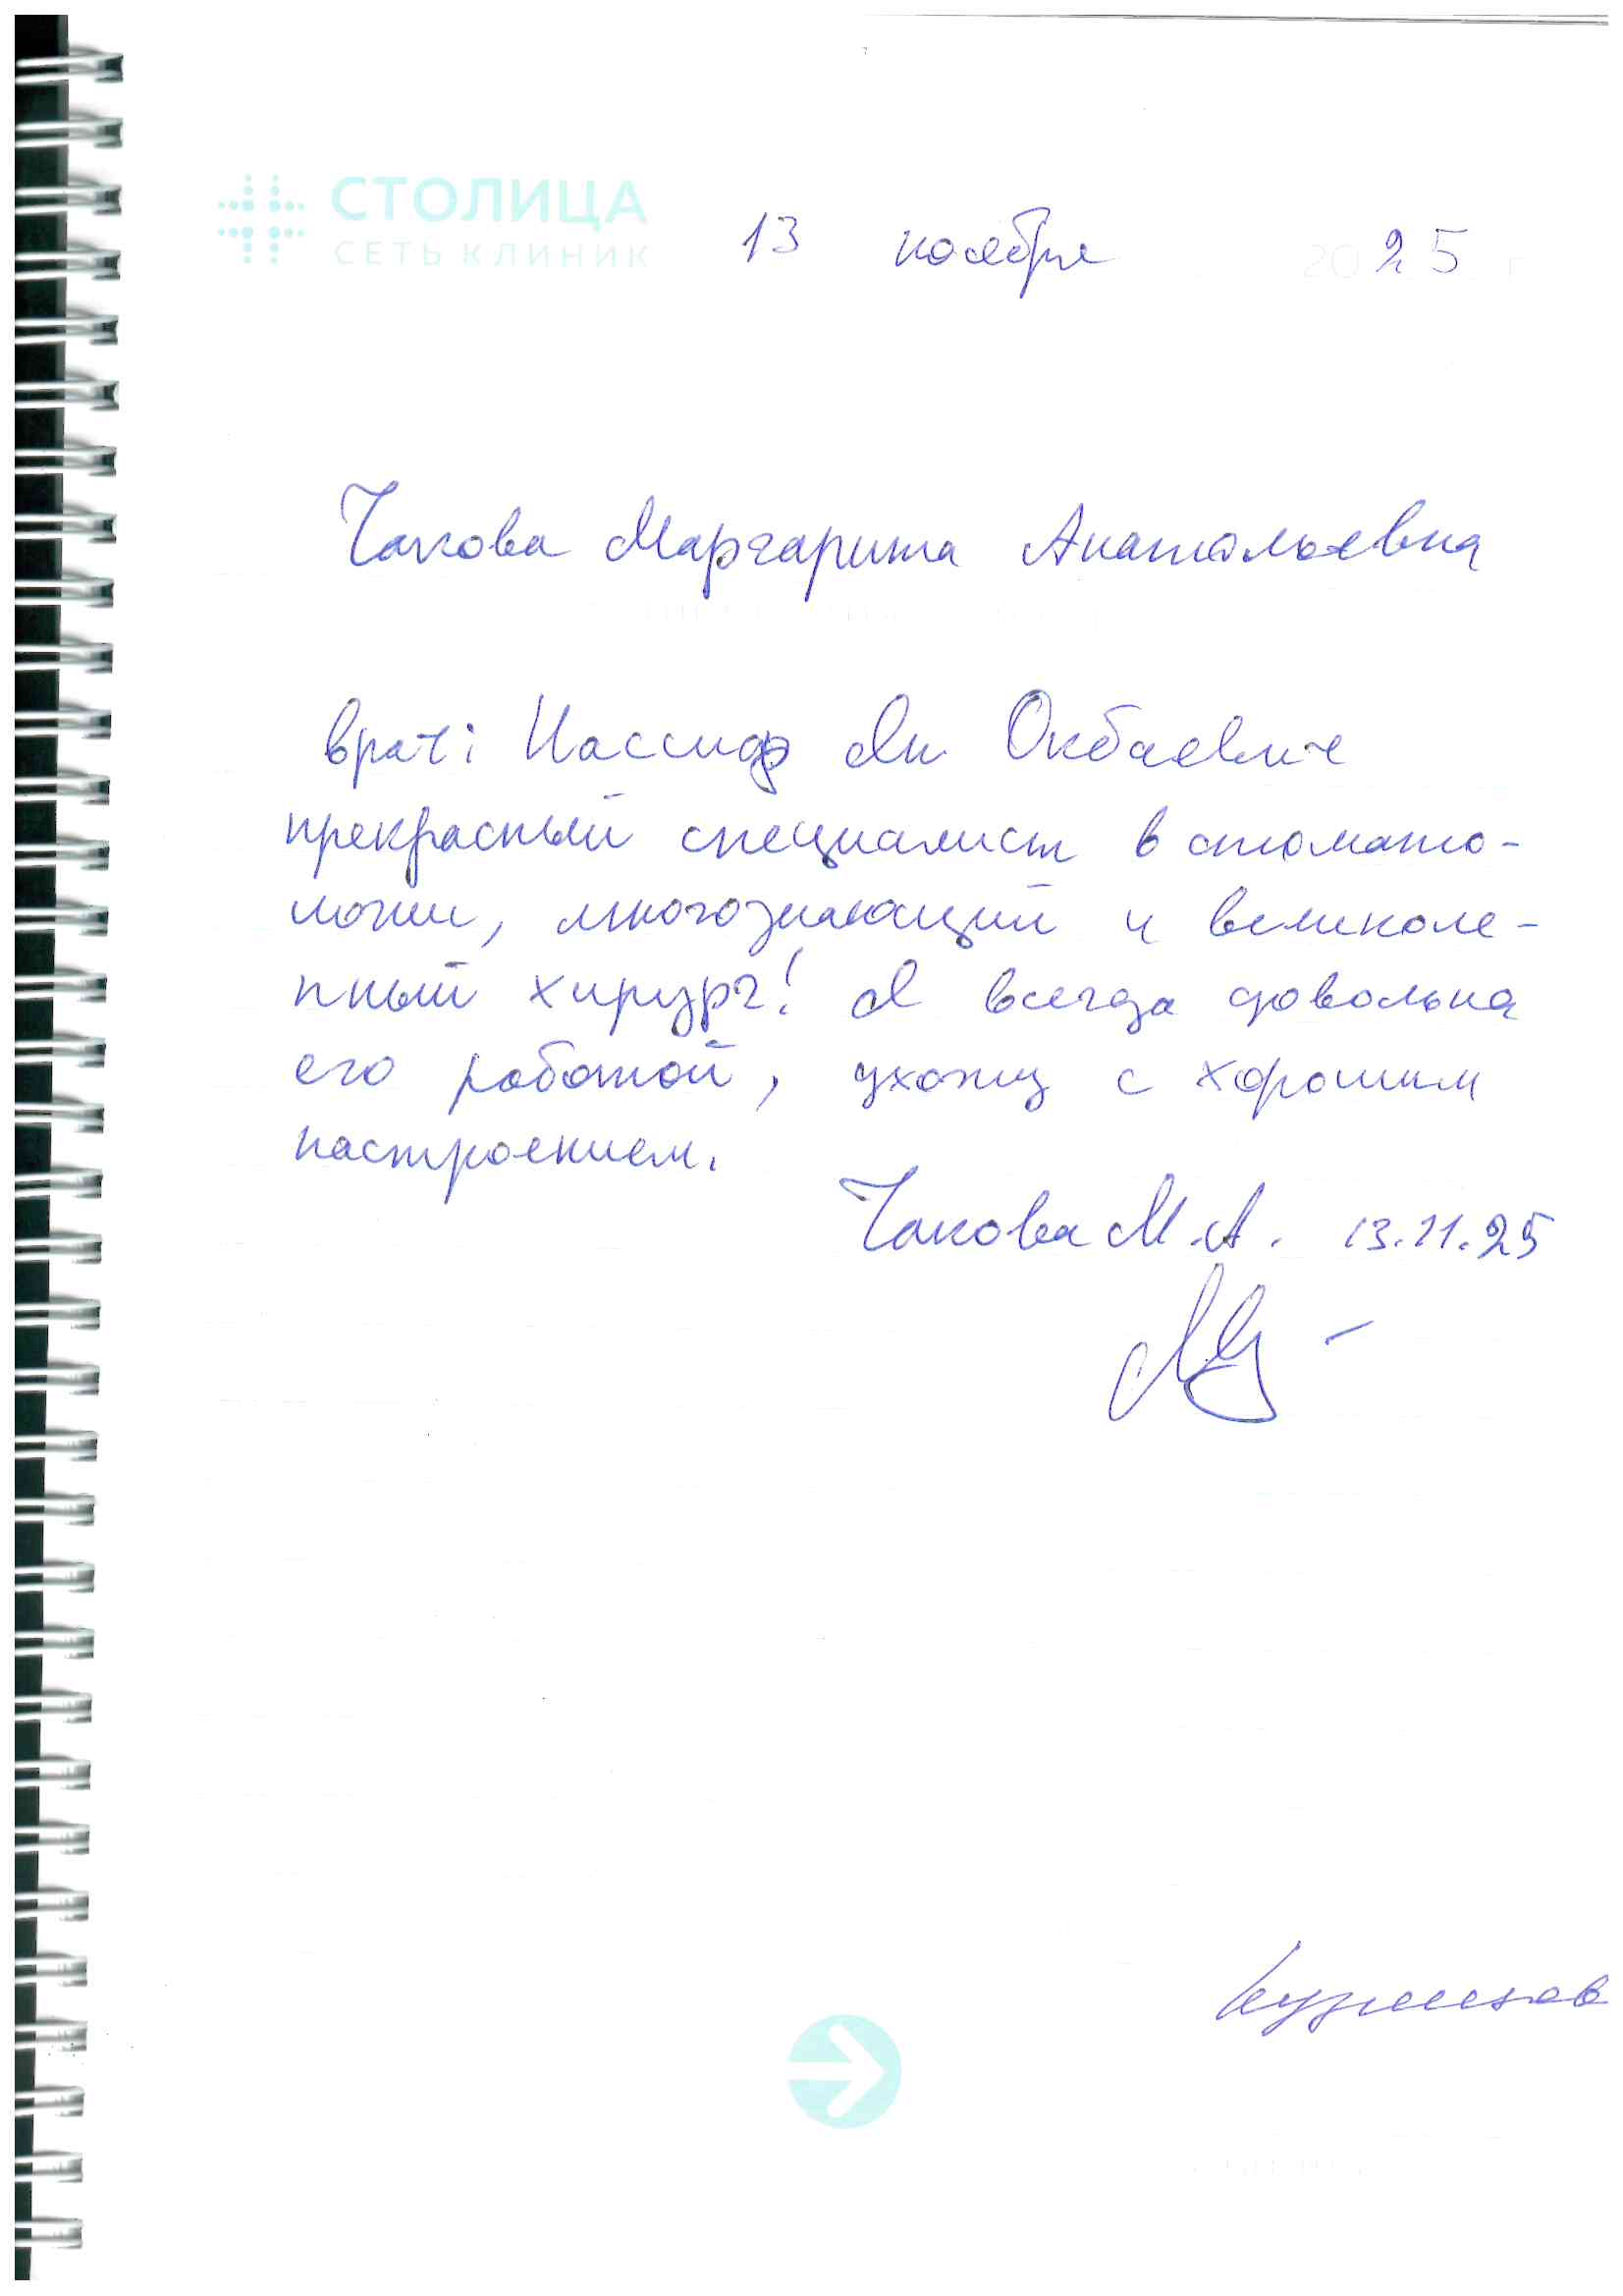 СТОЛИЦА
СЕТЬ КЛИНИК
13 ноября 2025 г
Чакова Маргарита Анатольевна
врач: Нассиф Ян Окбаевич
прекрасный специалист в стомато-
логии, многознающий и великоле-
пный хирург! Я всегда довольна
его работой, ухожу с хорошим
настроением.
Чакова М.А. 13.11.25